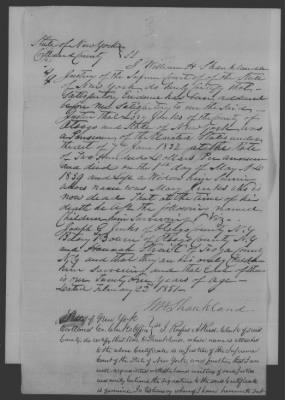 State of New York
Cortland County SS
I William H. Shankland
Justice of the Supreme Court of the State
of New York do hereby Certify that
Satisfactory Evidence has been adduced
before me Satisfactory to me the said
Justice that Levi Jenks of the County of
Otsego and State of New York, was
a Pensioner of the United States under
the act of 7th June 1832 at the rate
of Two Hundred Dollars Per annum
and died on the 1st day of May A.D.
1839 and left a Widow him surviving
whose name was Mary Jenks who is
now dead. That at the time of his
death he left the following named
Children him Surviving Viz
Joseph G Jenks of Otsego County N.Y.
Betsey Bowen of Otsego County N.Y.
and Hannah of County
N.Y. and that they are his only Children
him surviving and that Each of them
is over Twenty One years of age
Dated February 23d 1851
Wm H Shankland
State of New York
Cortland Co. Clerk's Office SS I Rufus A Reed Clerk of said
County do certify that Wm H Shankland whose name is attached
to the above Certificate is a Justice of the Supreme
Court of the State of New York, and further that I am
well acquainted with the hand writing of said Justice
and verily believe the signature to the said certificate
is genuine In testimony whereof I have hereunto set